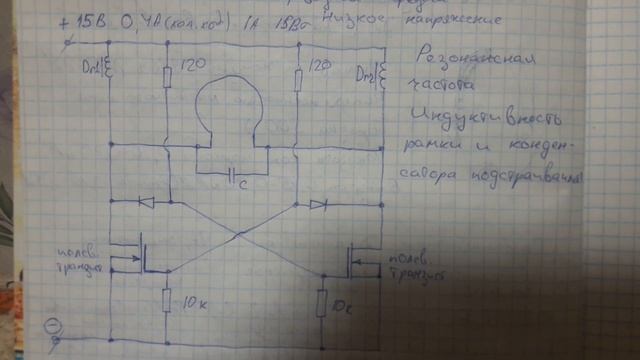 + 15В 0,4А (хол. ход) 1А 15Вт Низкое напряжение
Dr1 120 120 Dr2
Резонансная
частота
Индуктивность
рамки и конден-
сатора подстраивания
C
полев.
транзист
полев.
транзист
10к 10к